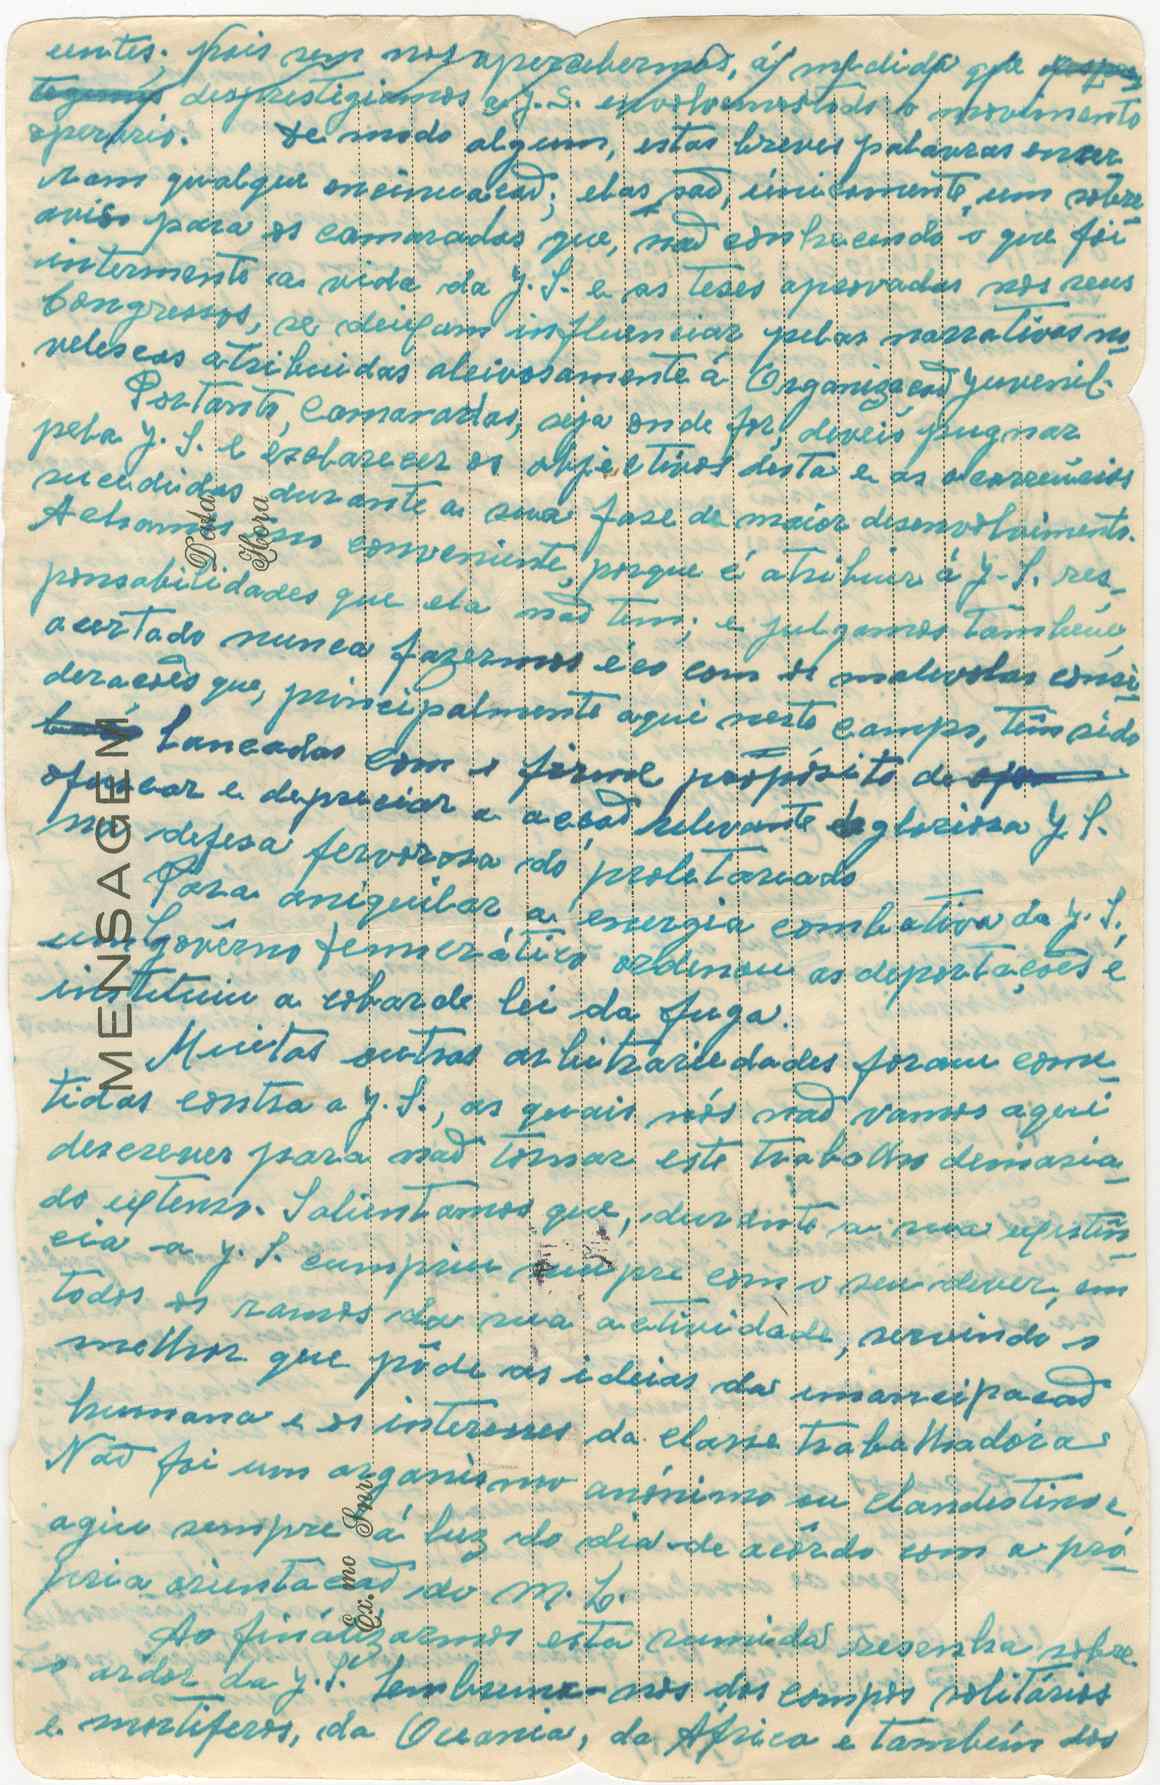 entes; pois sem nos apercebermos, á medida que
desprestigiamos a J. S. envolvemos todo o movimento
operário. De modo algum, estas breves palavras encer
ram qualquer encinuacaõ; elas saõ, únicamente, um sobre
aviso para os camaradas que, naõ conhecendo o que foi
intermente a vida da J. S. e as teses aprovadas nos seus
Congressos, se deixam influenciar pelas narrativas no_
velescas atribuidas aleivosamente á Organizacaõ Juvenil.
Portanto, Camaradas, seja onde for, deveis pugnar
pela J. S. e esclarecer os objectivos desta e as ocorrências
sucedidas durante a sua fase de maior desenvolvimento.
Achamos so conveniente, porque é atribuir á J. S. res_
ponsabilidades que ela naõ tem; e julgamos tâmbém,
acertado nunca fazermos éco com as malevolas consi_
deracoẽs que, principalmente aqui neste campo, têm sido
lancadas com o firme propósito de
ofuscar e depreciar a acçaõ relevante da gloriosa J. S.
na defesa fervorosa do proletariado
Para aniquilar a energia combativa da J. S.,
um Govêrno democrático ordenou as deportaçoẽs e
instituiu a cobarde lei da fuga.
Muitas outras arbitrariedades foram come_
tidas contra a J. S., as quais nós naõ vamos aqui
descrever para naõ tornar este trabalho demasia_
do extenso. Salientamos que, durante a sua existên_
cia a J. S. cumpriu sempre com o seu dever, em
todos os ramos da sua actividade, servindo o
melhor que pôde as ideias da emancipacaõ
humana e os interesses da classe trabalhadóra
Naõ foi um organismo anónimo ou clandestino e
agiu sempre á luz do dia de acôrdo com a pró_
pria orientacaõ do M. L.
Ao finálizarmos esta sumida resenha sobre
o ardor da J. S. lembremo-nos dos campos solitários
e mortiferos, da Oceania, da África e também dos
MENSAGEM
Data
Hora
Ex.mo Snr.